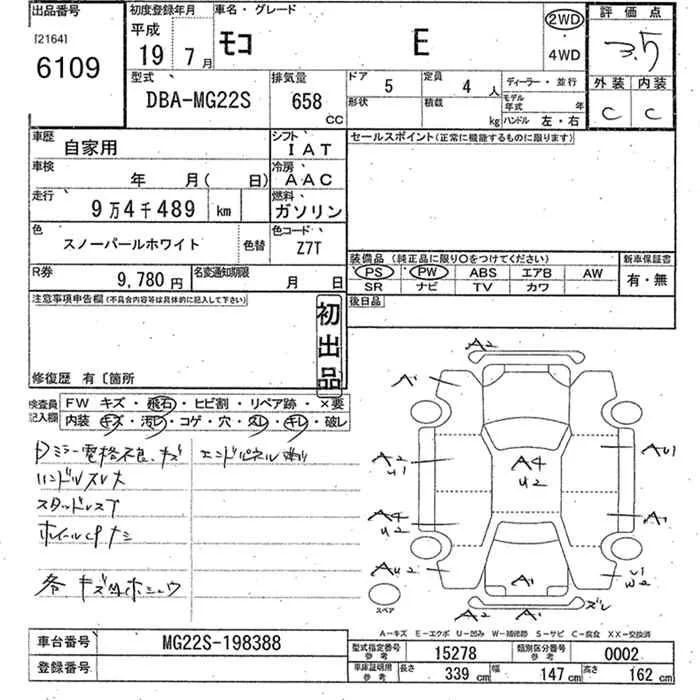 出品番号 初度登録年月 車名・グレード 2WD 評価点
[2164] 平成 モコ E 3.5
6109 19 7月 4WD
型式 排気量 ドア 5 定員 4人 ディーラー・並行 外装 内装
DBA-MG22S 658 cc 形状 積載 kg モデル年式 年 C C
ハンドル 左・右
車歴 自家用 シフト IAT セールスポイント(正常に機能するものに限ります)
車検 年 月( 日) 冷房 AAC
走行 9万4千489 km 燃料 ガソリン
色 スノーパールホワイト 色替 色コード Z7T
装備品(純正品に限り○をつけてください) 新車保証書
R券 9,780円 名変通知期限 月 日 PS PW ABS エアB AW 有・無
SR ナビ TV カワ
注意事項申告欄(不具合内容等は具体的に記入して下さい) 初出品 後日品
修復歴 有〔箇所
検査員記入欄 FW キズ・飛石・ヒビ割・リペア跡・×要
内装 キズ・汚レ・コゲ・穴・スレ・キレ・破レ
ミラー電格不良、キズ エンドパネル
ハンドルスレ大
スタッドレス
ホイールCPナシ
各キズ
A2
A1
A2 U1
A4 U2
AU1
A4 U2
A1
AU2
A1
U1 W2
A2 A1 ズレ
スペア
A-キズ E-エクボ U-凹み W-補修跡 S-サビ C-腐食 XX-交換済
車台番号 MG22S-198388 型式指定番号 参考 15278 類別区分番号 参考 0002
登録番号 車庫証明用 参考 長さ 339 cm 幅 147 cm 高さ 162 cm